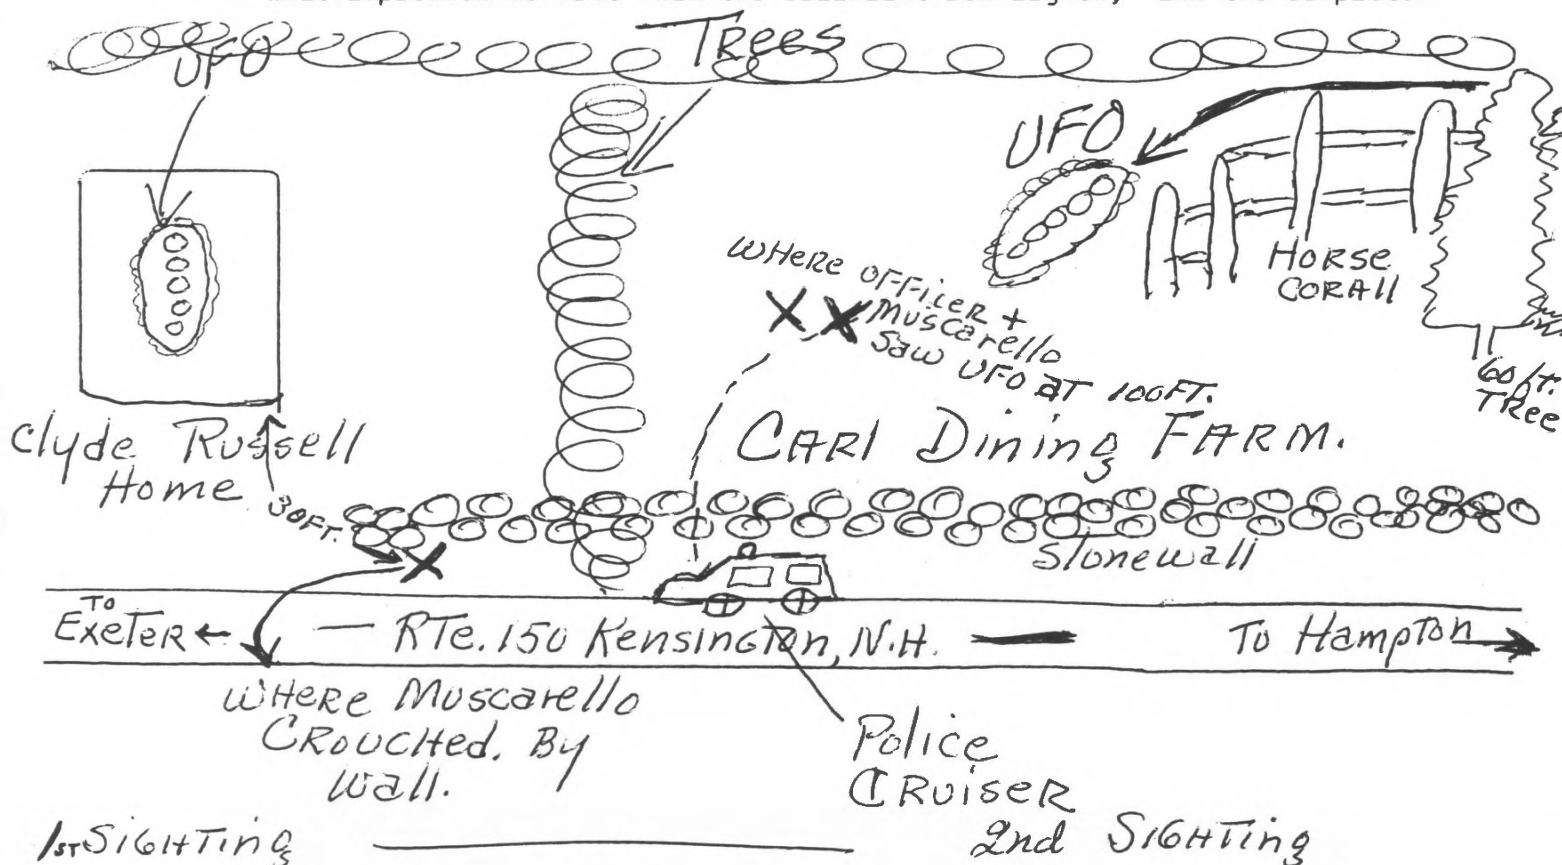 Trees
UFO
UFO
WHERE OFFICER +
Muscarello
Saw UFO AT 100FT.
HORSE
CORAll
60ft.
TRee
Clyde Russell
Home
CARl Dining FARM.
30FT.
Stonewall
TO
EXeTeR
RTe. 150 Kensington, N.H.
To Hampton
WHeRe Muscarello
CROUCHed. By
Wall.
Police
CRuiseR
1ST SIGHTing
2nd SIGHTing